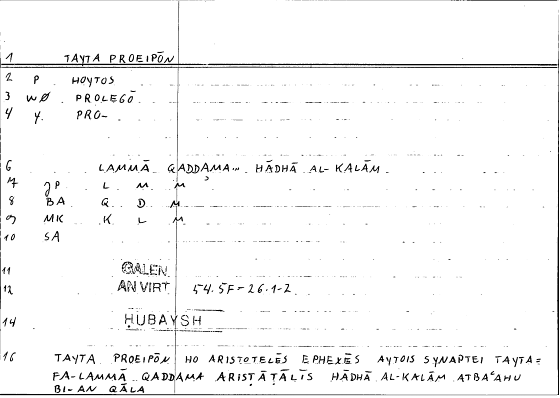 1 TAYTA PROEIPŌN
2 P HOYTOS
3 WØ PROLEGŌ
4 Y. PRO-
6 LAMMĀ QADDAMA... HĀDHĀ AL-KALĀM
7 JP L M M
8 BA Q D M
9 MK K L M
10 SA
11 GALEN
12 AN VIRT 54.5F-26.1-2
14 ḤUBAYSH
16 TAYTA PROEIPŌN HO ARISTOTELĒS EPHEXĒS AYTOIS SYNAPTEI TAYTA=
FA-LAMMĀ QADDAMA ARISṬĀṬĀLĪS HĀDHĀ AL-KALĀM ATBAʿAHU
BI-AN QĀLA